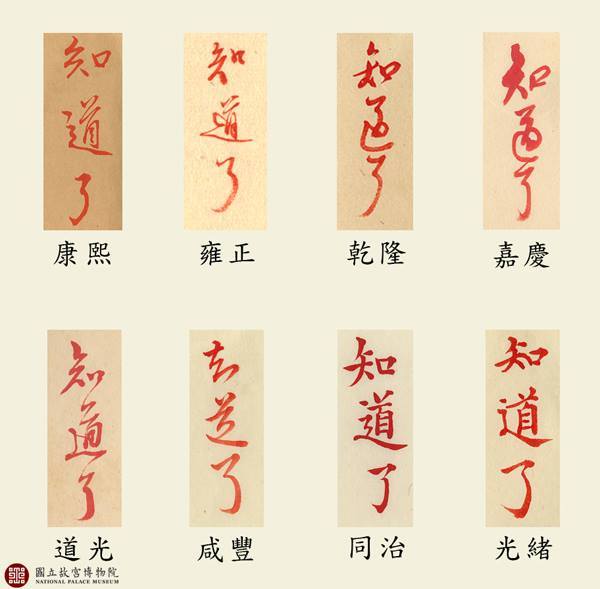 知道了
康熙
知道了
雍正
知道了
乾隆
知道了
嘉慶
知道了
道光
知道了
咸豐
知道了
同治
知道了
光緒
國立故宮博物院
NATIONAL PALACE MUSEUM